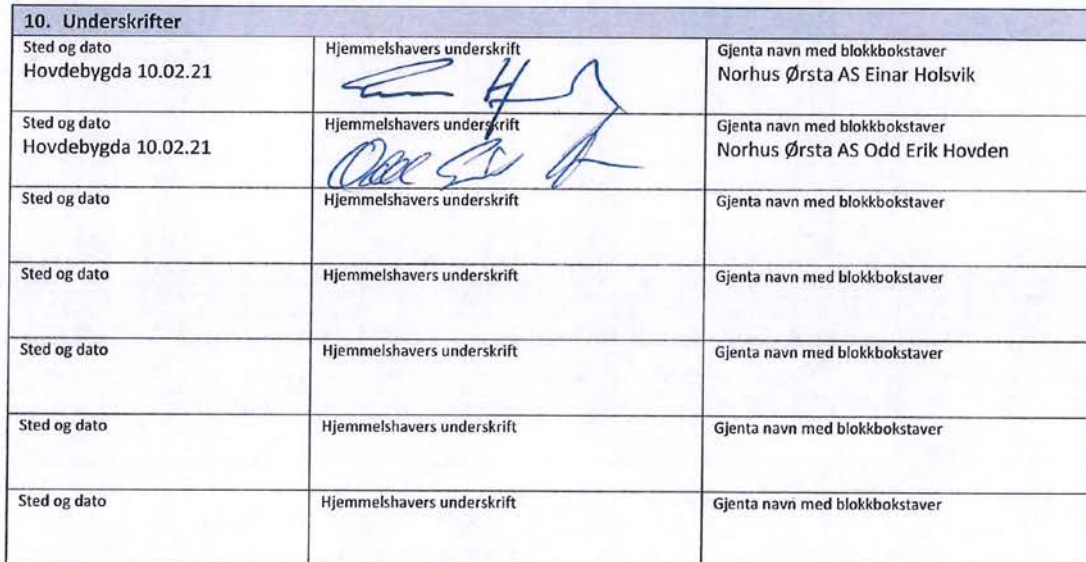 10. Underskrifter
Sted og dato
Hjemmelshavers underskrift
Gjenta navn med blokkbokstaver
Hovdebygda 10.02.21
Norhus Ørsta AS Einar Holsvik
Sted og dato
Hjemmelshavers underskrift
Gjenta navn med blokkbokstaver
Hovdebygda 10.02.21
Odd
Norhus Ørsta AS Odd Erik Hovden
Sted og dato
Hjemmelshavers underskrift
Gjenta navn med blokkbokstaver
Sted og dato
Hjemmelshavers underskrift
Gjenta navn med blokkbokstaver
Sted og dato
Hjemmelshavers underskrift
Gjenta navn med blokkbokstaver
Sted og dato
Hjemmelshavers underskrift
Gjenta navn med blokkbokstaver
Sted og dato
Hjemmelshavers underskrift
Gjenta navn med blokkbokstaver